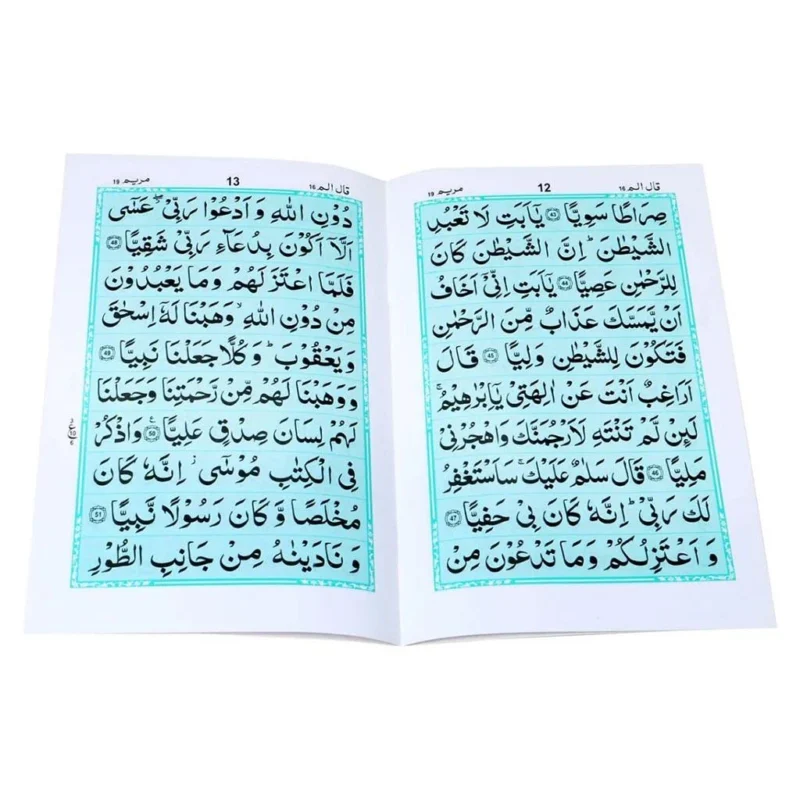 قال الم ١٦ 12 مريم ١٩
صِرَاطًا سَوِيًّا ﴿43﴾ يٰۤاَبَتِ لَا تَعْبُدِ
الشَّيْطٰنَ ؕ اِنَّ الشَّيْطٰنَ كَانَ
لِلرَّحْمٰنِ عَصِيًّا ﴿44﴾ يٰۤاَبَتِ اِنِّیْۤ اَخَافُ
اَنْ يَّمَسَّكَ عَذَابٌ مِّنَ الرَّحْمٰنِ
فَتَكُوْنَ لِلشَّيْطٰنِ وَلِيًّا ﴿45﴾ قَالَ
اَرَاغِبٌ اَنْتَ عَنْ اٰلِهَتِیْ يٰۤاِبْرٰهِيْمُ ۚ
لَئِنْ لَّمْ تَنْتَهِ لَاَرْجُمَنَّكَ وَاهْجُرْنِیْ
مَلِيًّا ﴿46﴾ قَالَ سَلٰمٌ عَلَيْكَ ۚ سَاَسْتَغْفِرُ
لَكَ رَبِّیْ ؕ اِنَّهٗ كَانَ بِیْ حَفِيًّا ﴿47﴾
وَ اَعْتَزِلُكُمْ وَمَا تَدْعُوْنَ مِنْ
قال الم ١٦ 13 مريم ١٩
دُوْنِ اللّٰهِ وَ اَدْعُوْا رَبِّیْ ۖ عَسٰۤى
اَلَّاۤ اَكُوْنَ بِدُعَآءِ رَبِّیْ شَقِيًّا ﴿48﴾
فَلَمَّا اعْتَزَلَهُمْ وَمَا يَعْبُدُوْنَ
مِنْ دُوْنِ اللّٰهِ ۙ وَهَبْنَا لَهٗۤ اِسْحٰقَ
وَ يَعْقُوْبَ ؕ وَكُلًّا جَعَلْنَا نَبِيًّا ﴿49﴾
وَوَهَبْنَا لَهُمْ مِّنْ رَّحْمَتِنَا وَجَعَلْنَا
لَهُمْ لِسَانَ صِدْقٍ عَلِيًّا ﴿50﴾ وَاذْكُرْ
فِی الْكِتٰبِ مُوْسٰۤى ؗ اِنَّهٗ كَانَ
مُخْلَصًا وَّ كَانَ رَسُوْلًا نَّبِيًّا ﴿51﴾
وَ نَادَيْنٰهُ مِنْ جَانِبِ الطُّوْرِ